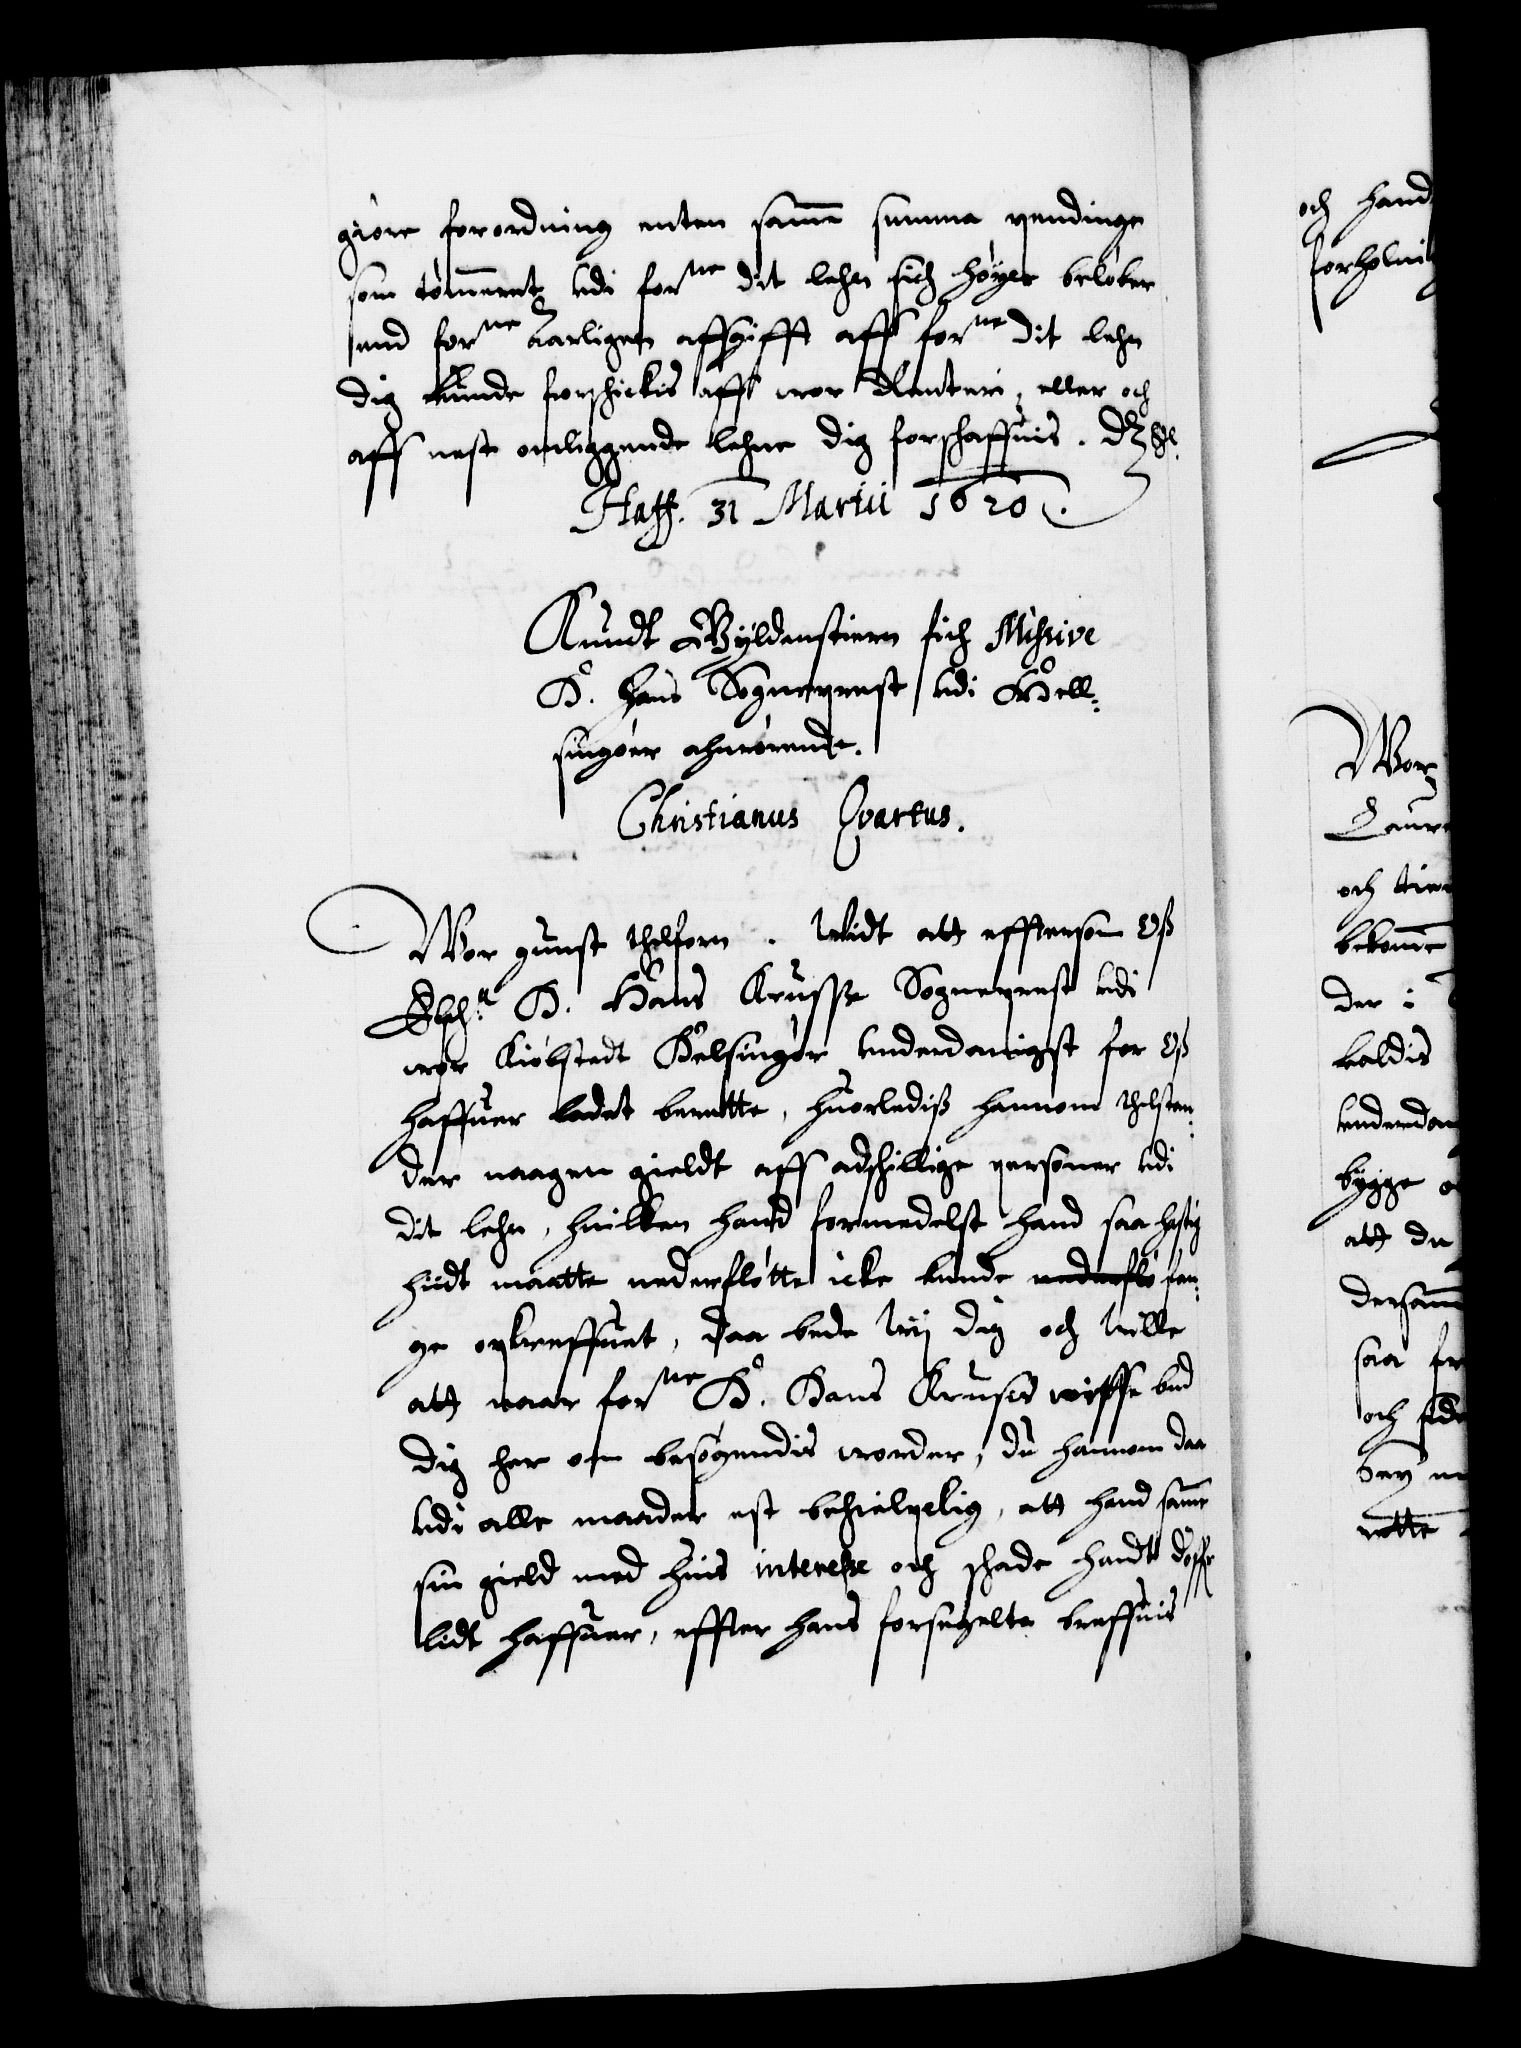 giøre forordning enten samme summa pendinge
som tømmeret udi forne dit lehn sich høyer beløber
end forne aarligen affgifft aff forne dit lehn
dig kunde forschickis aff wor Renteri, eller och
aff nest omliggende lehne dig forschaffuis.
Haff. 31 Martii 1620.
Knudt Gyldenstiern fich Missive
H. Hans Sogneprest udi Hell-
singøer ahnrørende.
Christianus Qvartus.
Wor gunst tilforn. Widt att effterson Oß
Elsch. H. Hans Krusse Sogneprest udi
wor Kiøbstedt Helsingør underdanigst for Oß
haffuer ladet berette, huorlediß hannom tilsten-
der naagen gieldt aff adschillige personer udi
dit lehn, huilken hand formedelst hand saa hastig
hiidt maatte nederfløtte icke kunde nederflø fan-
ge opkreffuet, Daa bede Wij dig och Wille
att naar forne H. Hans Kruses wisse bud
dig her om besøgendis worder, du hannom daa
udi alle maader est behielpelig, att hand samme
sin gield med huis interesse och schade handt der
lidt haffuer, effter hans forseyelte breffuis
och hand
Wor
och
bekomme
der i
kaldis
underdan
bygge
att du
dersam
saa
och
rette